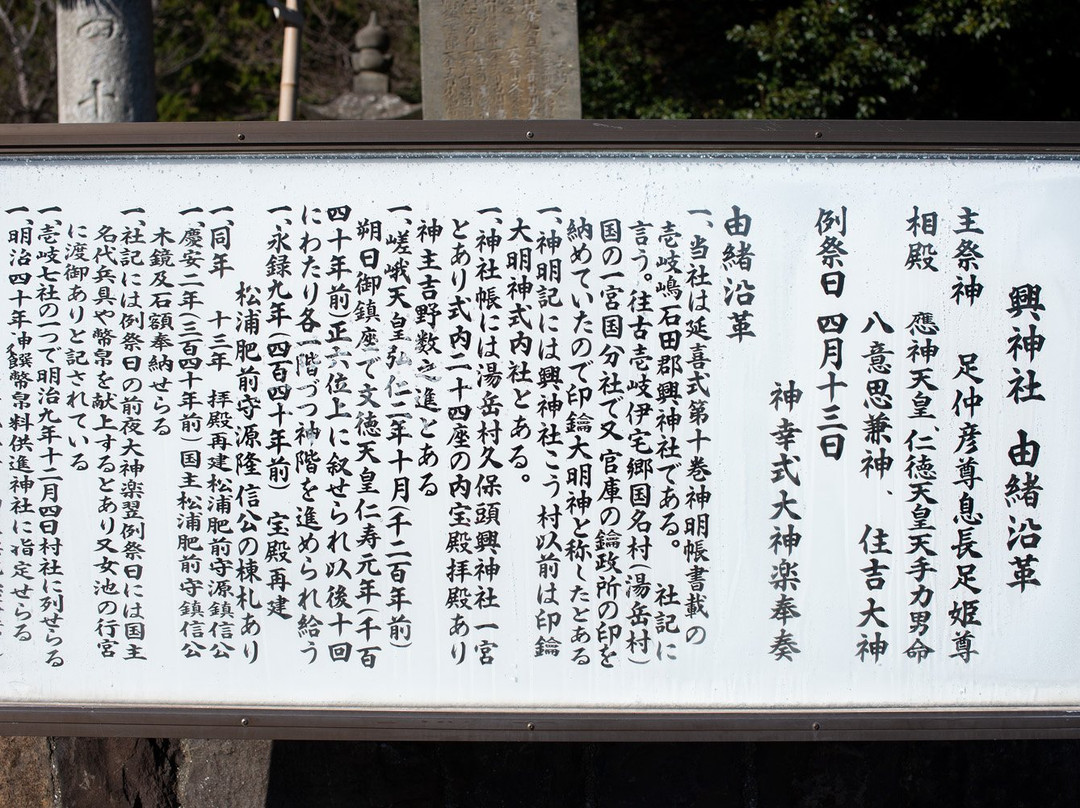 興神社 由緒沿革
主祭神 足仲彦尊息長足姫尊
相殿 應神天皇、仁徳天皇天手力男命
八意思兼神、 住吉大神
例祭日 四月十三日
神幸式大神楽奉奏
由緒沿革
一、当社は延喜式第十巻神明帳書載の
壱岐嶋石田郡興神社である。 社記に
言う。往古壱岐伊宅郷国名村(湯岳村)
国の一宮国分社で又官庫の鑰政所の印を
納めていたので印鑰大明神と称したとある
一、神明記には興神社こう村以前は印鑰
大明神式内社とある。
一、神社帳には湯岳村久保頭興神社一宮
とあり式内二十四座の内宝殿拝殿あり
神主吉野数之進とある
一、嵯峨天皇弘仁二年十月(千二百年前)
朔日御鎮座で文徳天皇仁寿元年(千百
四十年前)正六位上に叙せられ以後十回
にわたり各一階づつ神階を進められ給う
一、永録九年(四百四十年前) 宝殿再建
松浦肥前守源隆信公の棟札あり
一、同年 十三年 拝殿再建松浦肥前守源鎮信公
一、慶安二年(三百四十年前)国主松浦肥前守鎮信公
木鏡及石額奉納せらる
一、社記には例祭日の前夜大神楽翌例祭日には国主
名代兵具や幣帛を献上するとあり又女池の行宮
に渡御ありと記されている
一、壱岐七社の一つで明治九年十二月四日村社に列せらる
一、明治四十年神饌幣帛料供進神社に指定せらる